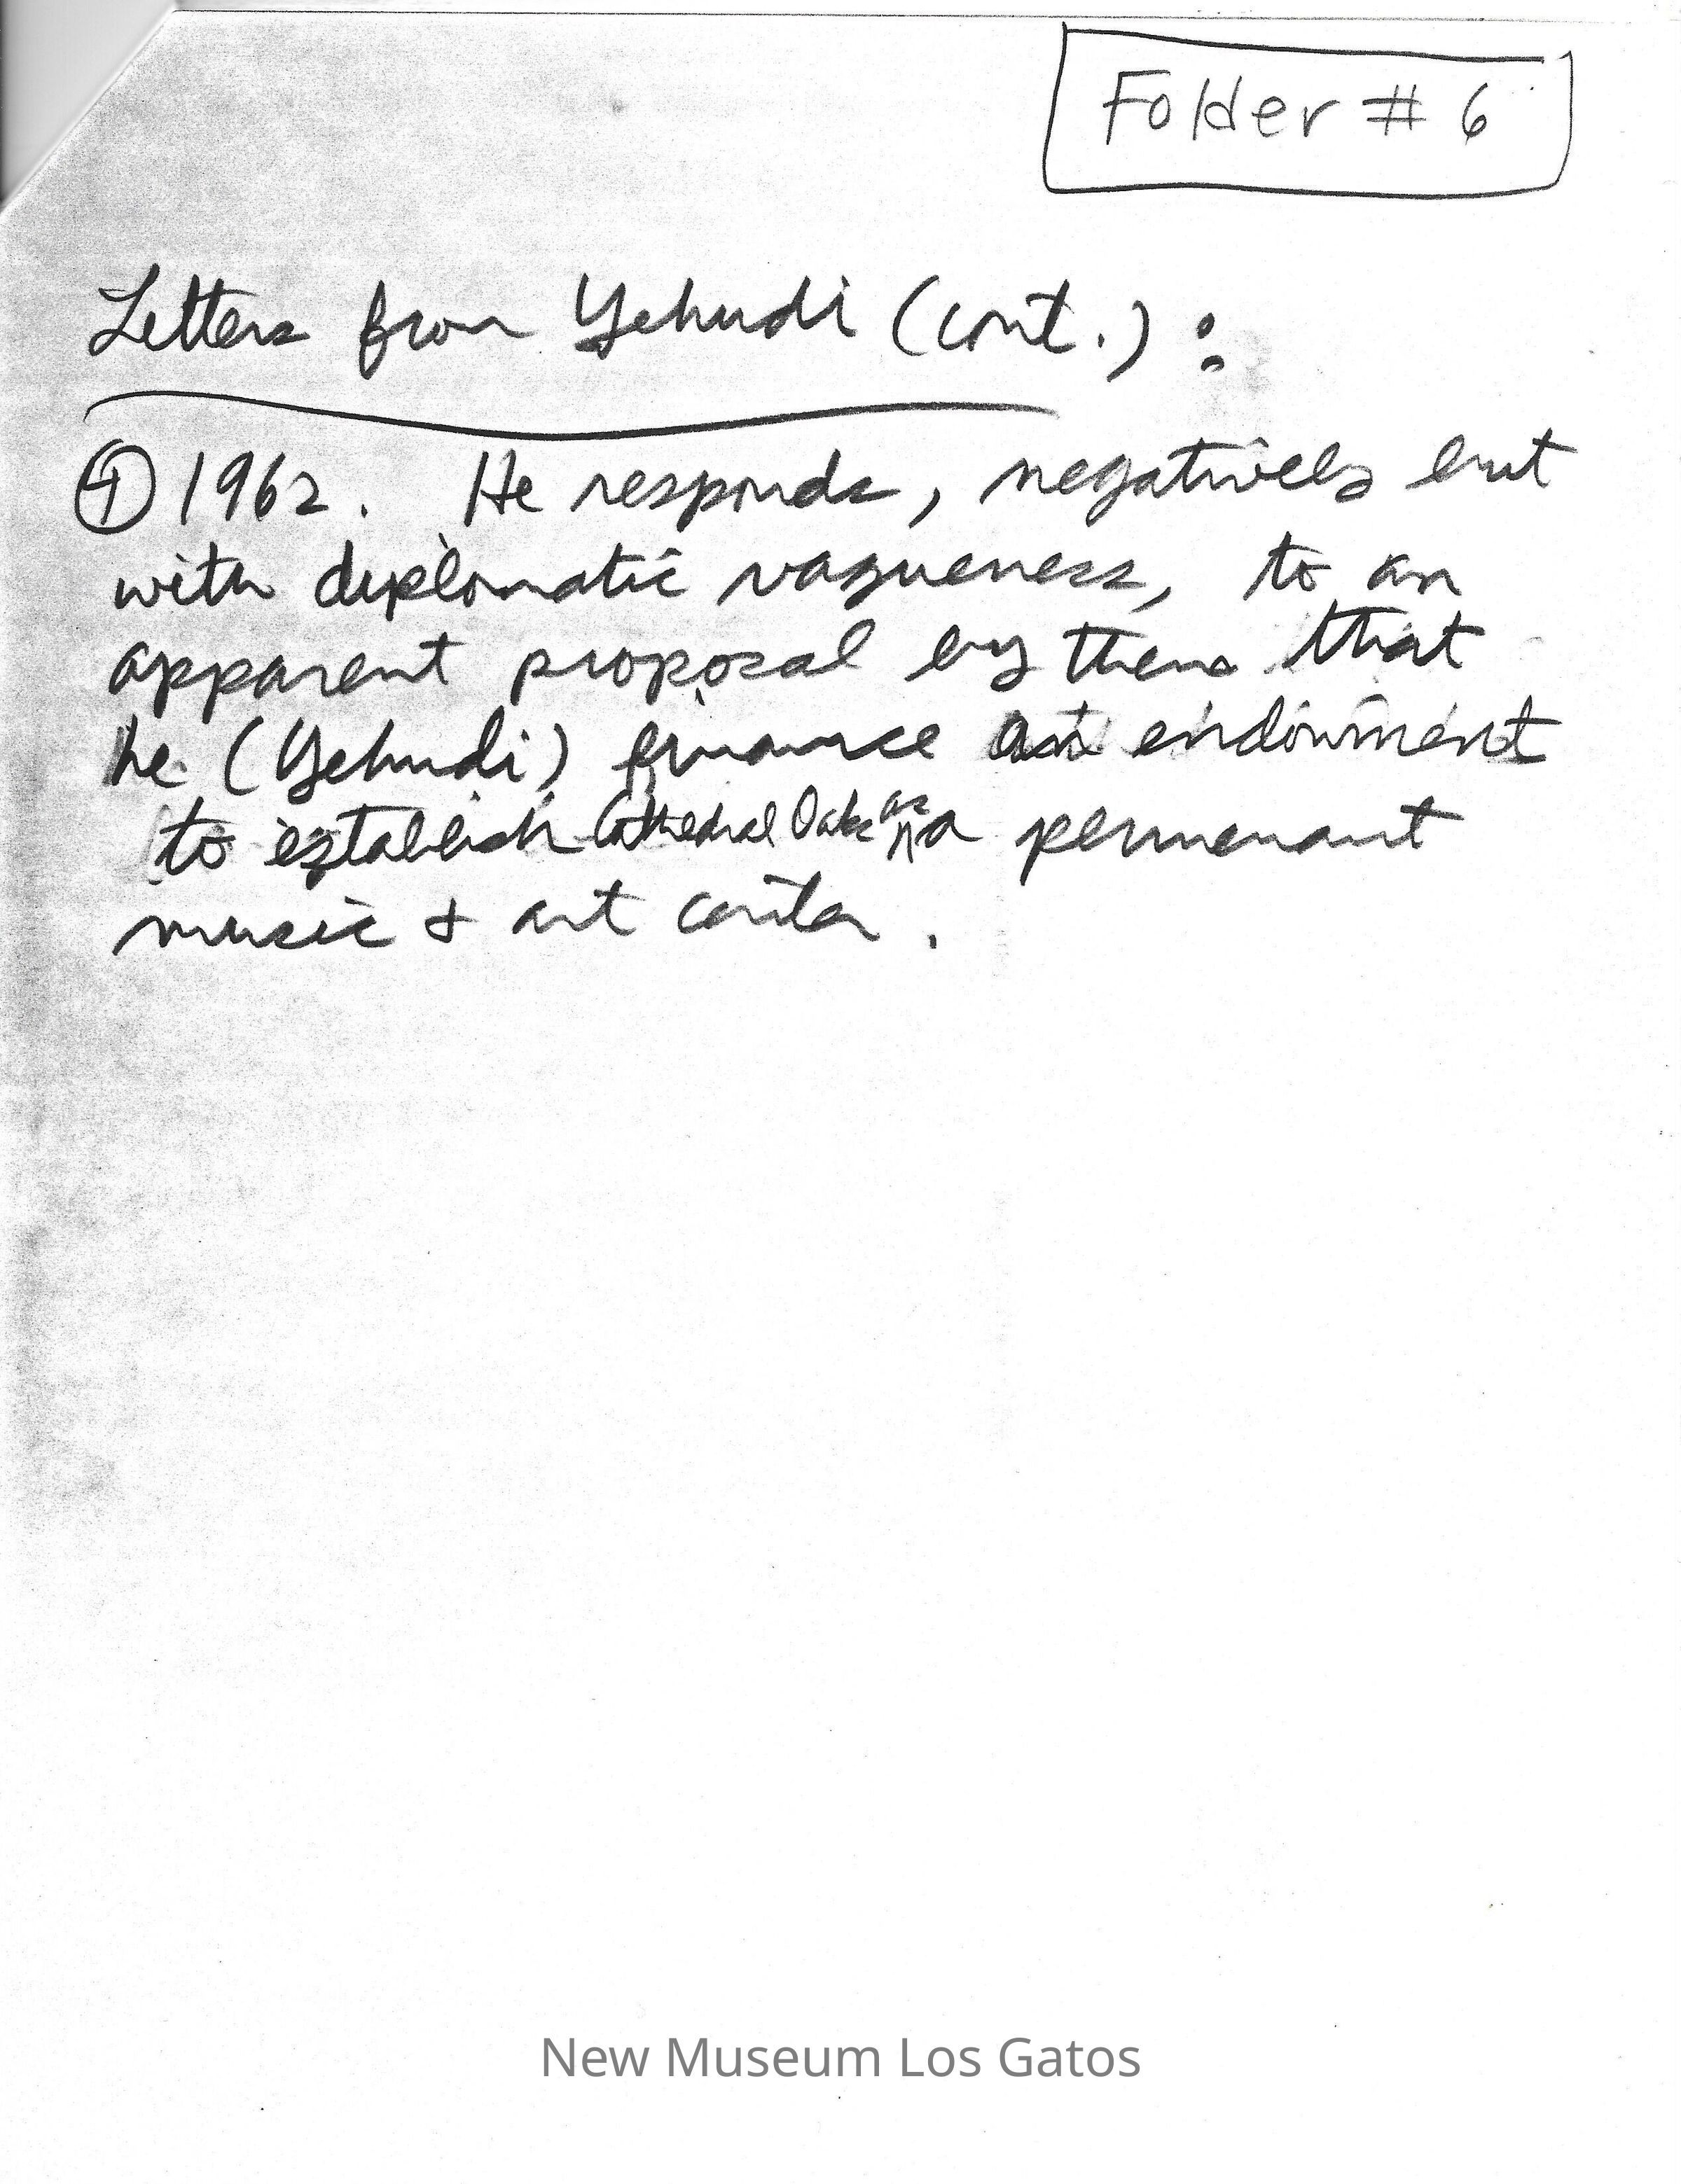 Folder # 6
Letters from Yehudi (cont.) :
④ 1962. He responds, negatively but
with diplomatic vagueness, to an
apparent proposal by them that
he (Yehudi) finance an endowment
to establish Cathedral Oaks as a permenant
music & art center.
New Museum Los Gatos